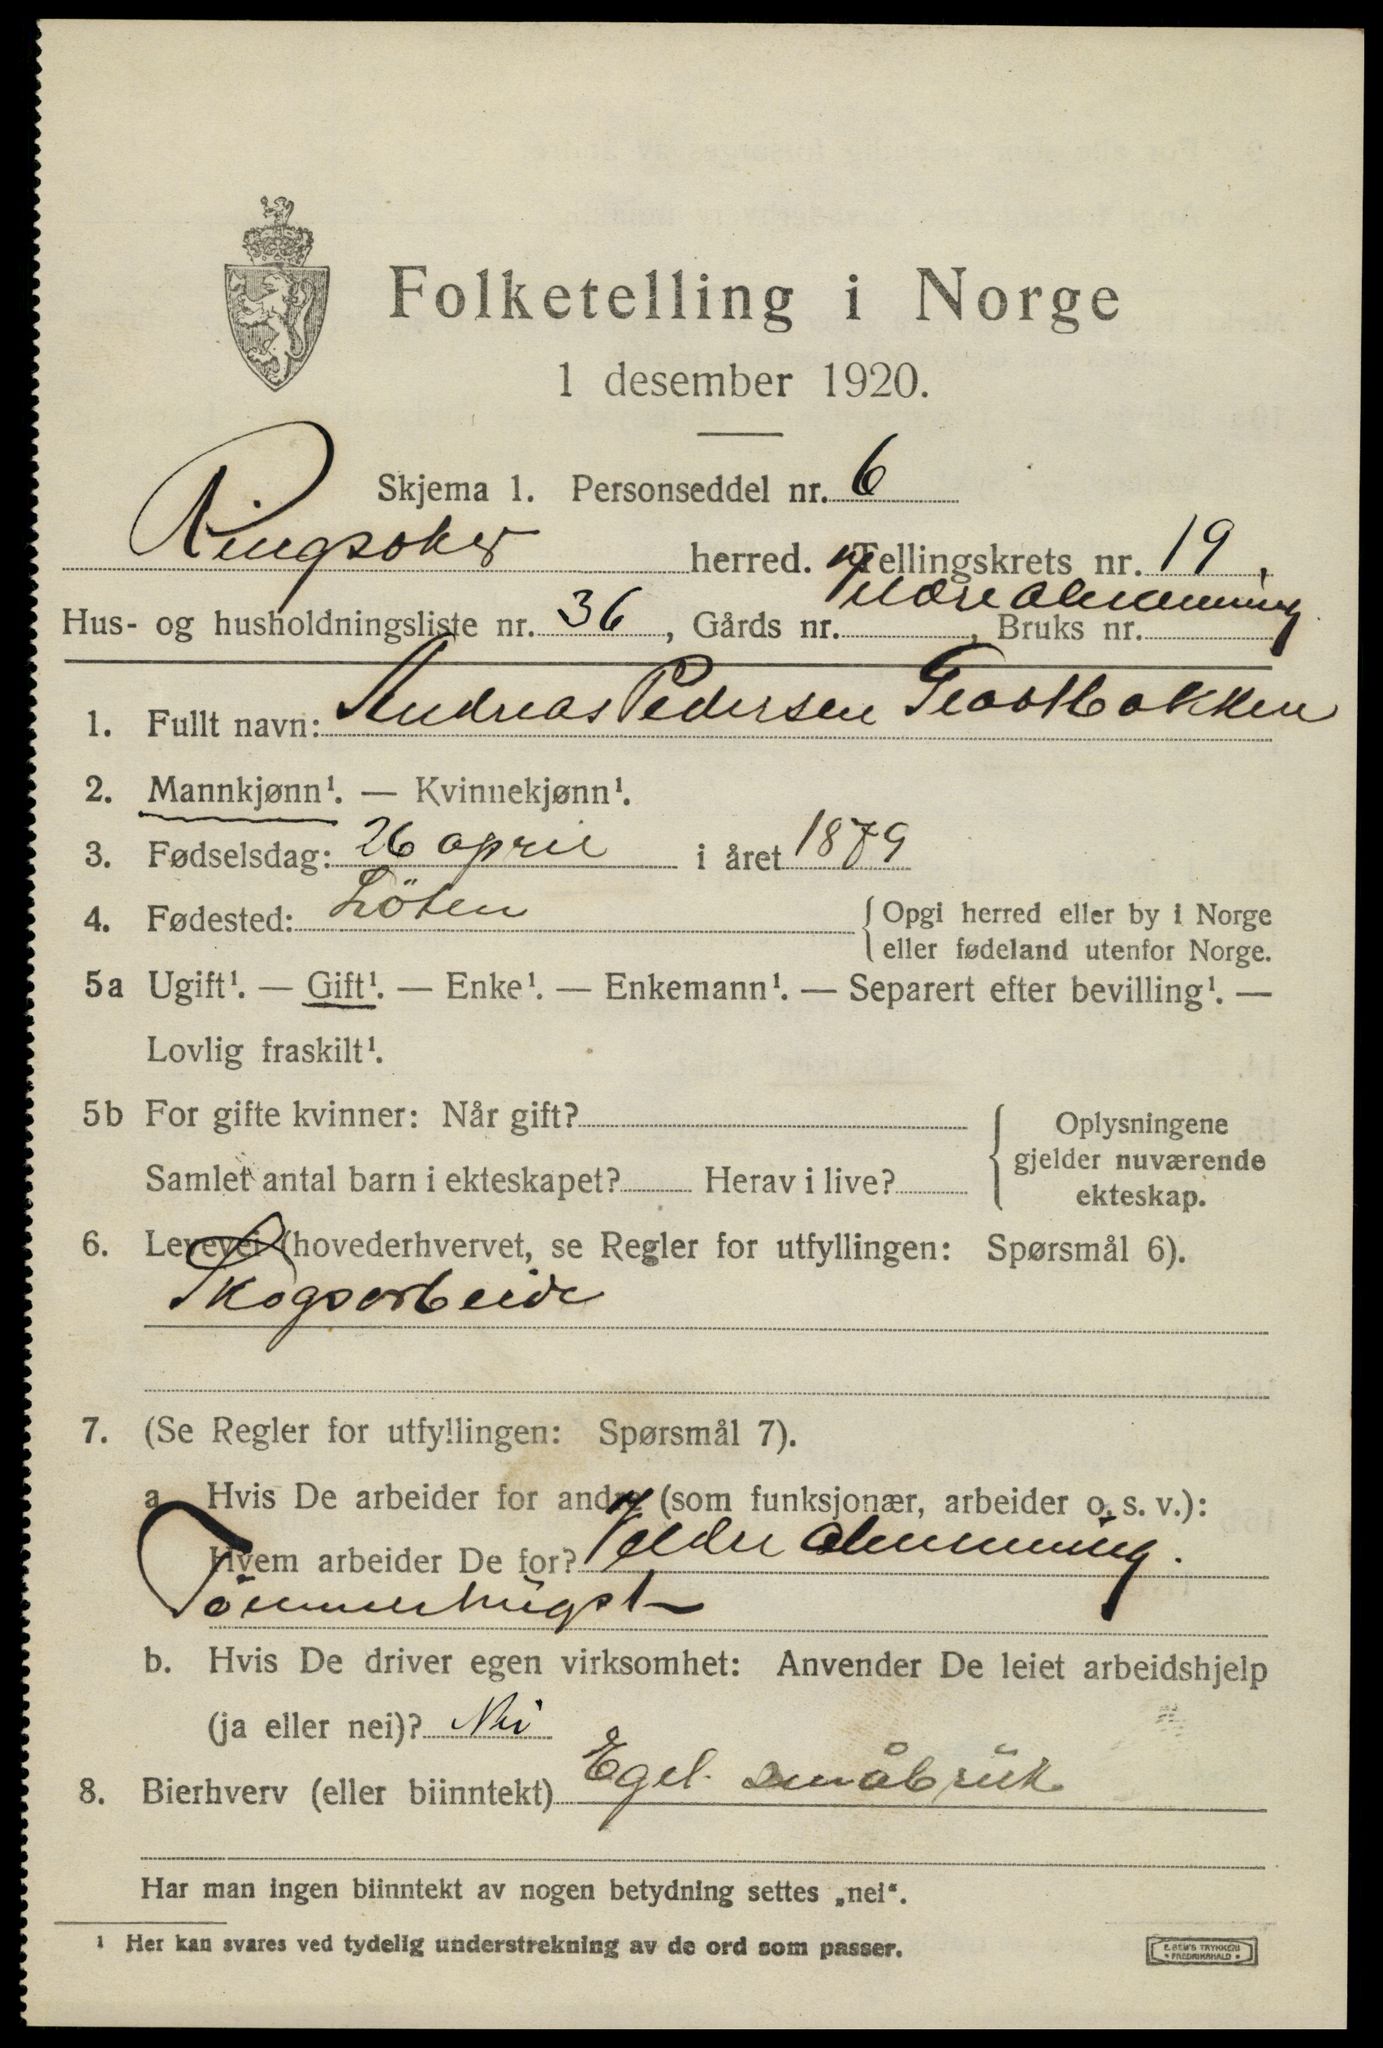 Folketelling i Norge
1 desember 1920.
Skjema 1. Personseddel nr. 6
Ringsaker herred. Tellingskrets nr. 19.
Veldre almenning
Hus- og husholdningsliste nr. 36, Gårds nr. , Bruks nr.
1. Fullt navn: Andreas Pedersen
2. Mannkjønn¹. — Kvinnekjønn¹.
3. Fødselsdag: 26 april i året 1879
4. Fødested: Löten {Opgi herred eller by i Norge
eller fødeland utenfor Norge.
5a Ugift¹. — Gift¹. — Enke¹. — Enkemann¹. — Separert efter bevilling¹. —
Lovlig fraskilt¹.
5b For gifte kvinner: Når gift? Oplysningene
gjelder nuværende
Samlet antal barn i ekteskapet? Herav i live? ekteskap.
6. Levevei (hovederhvervet, se Regler for utfyllingen: Spørsmål 6).
Skogsarbeide
7. (Se Regler for utfyllingen: Spørsmål 7).
a. Hvis De arbeider for andre (som funksjonær, arbeider o. s. v.):
Hvem arbeider De for? Veldre almenning.
Tömmerhugst
b. Hvis De driver egen virksomhet: Anvender De leiet arbeidshjelp
(ja eller nei)? Nei
8. Bierhverv (eller biinntekt) Egel. småbrük
Har man ingen biinntekt av nogen betydning settes „nei“.
¹ Her kan svares ved tydelig understrekning av de ord som passer.
E. SEM'S TRYKKERI
FREDRIKSHALD